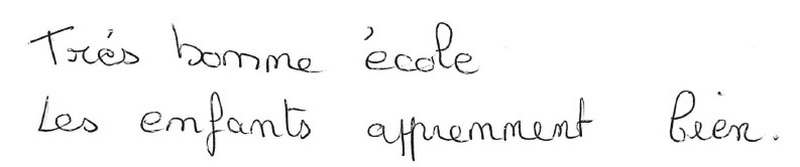 Trés bonne école
Les enfants apprennent bien.